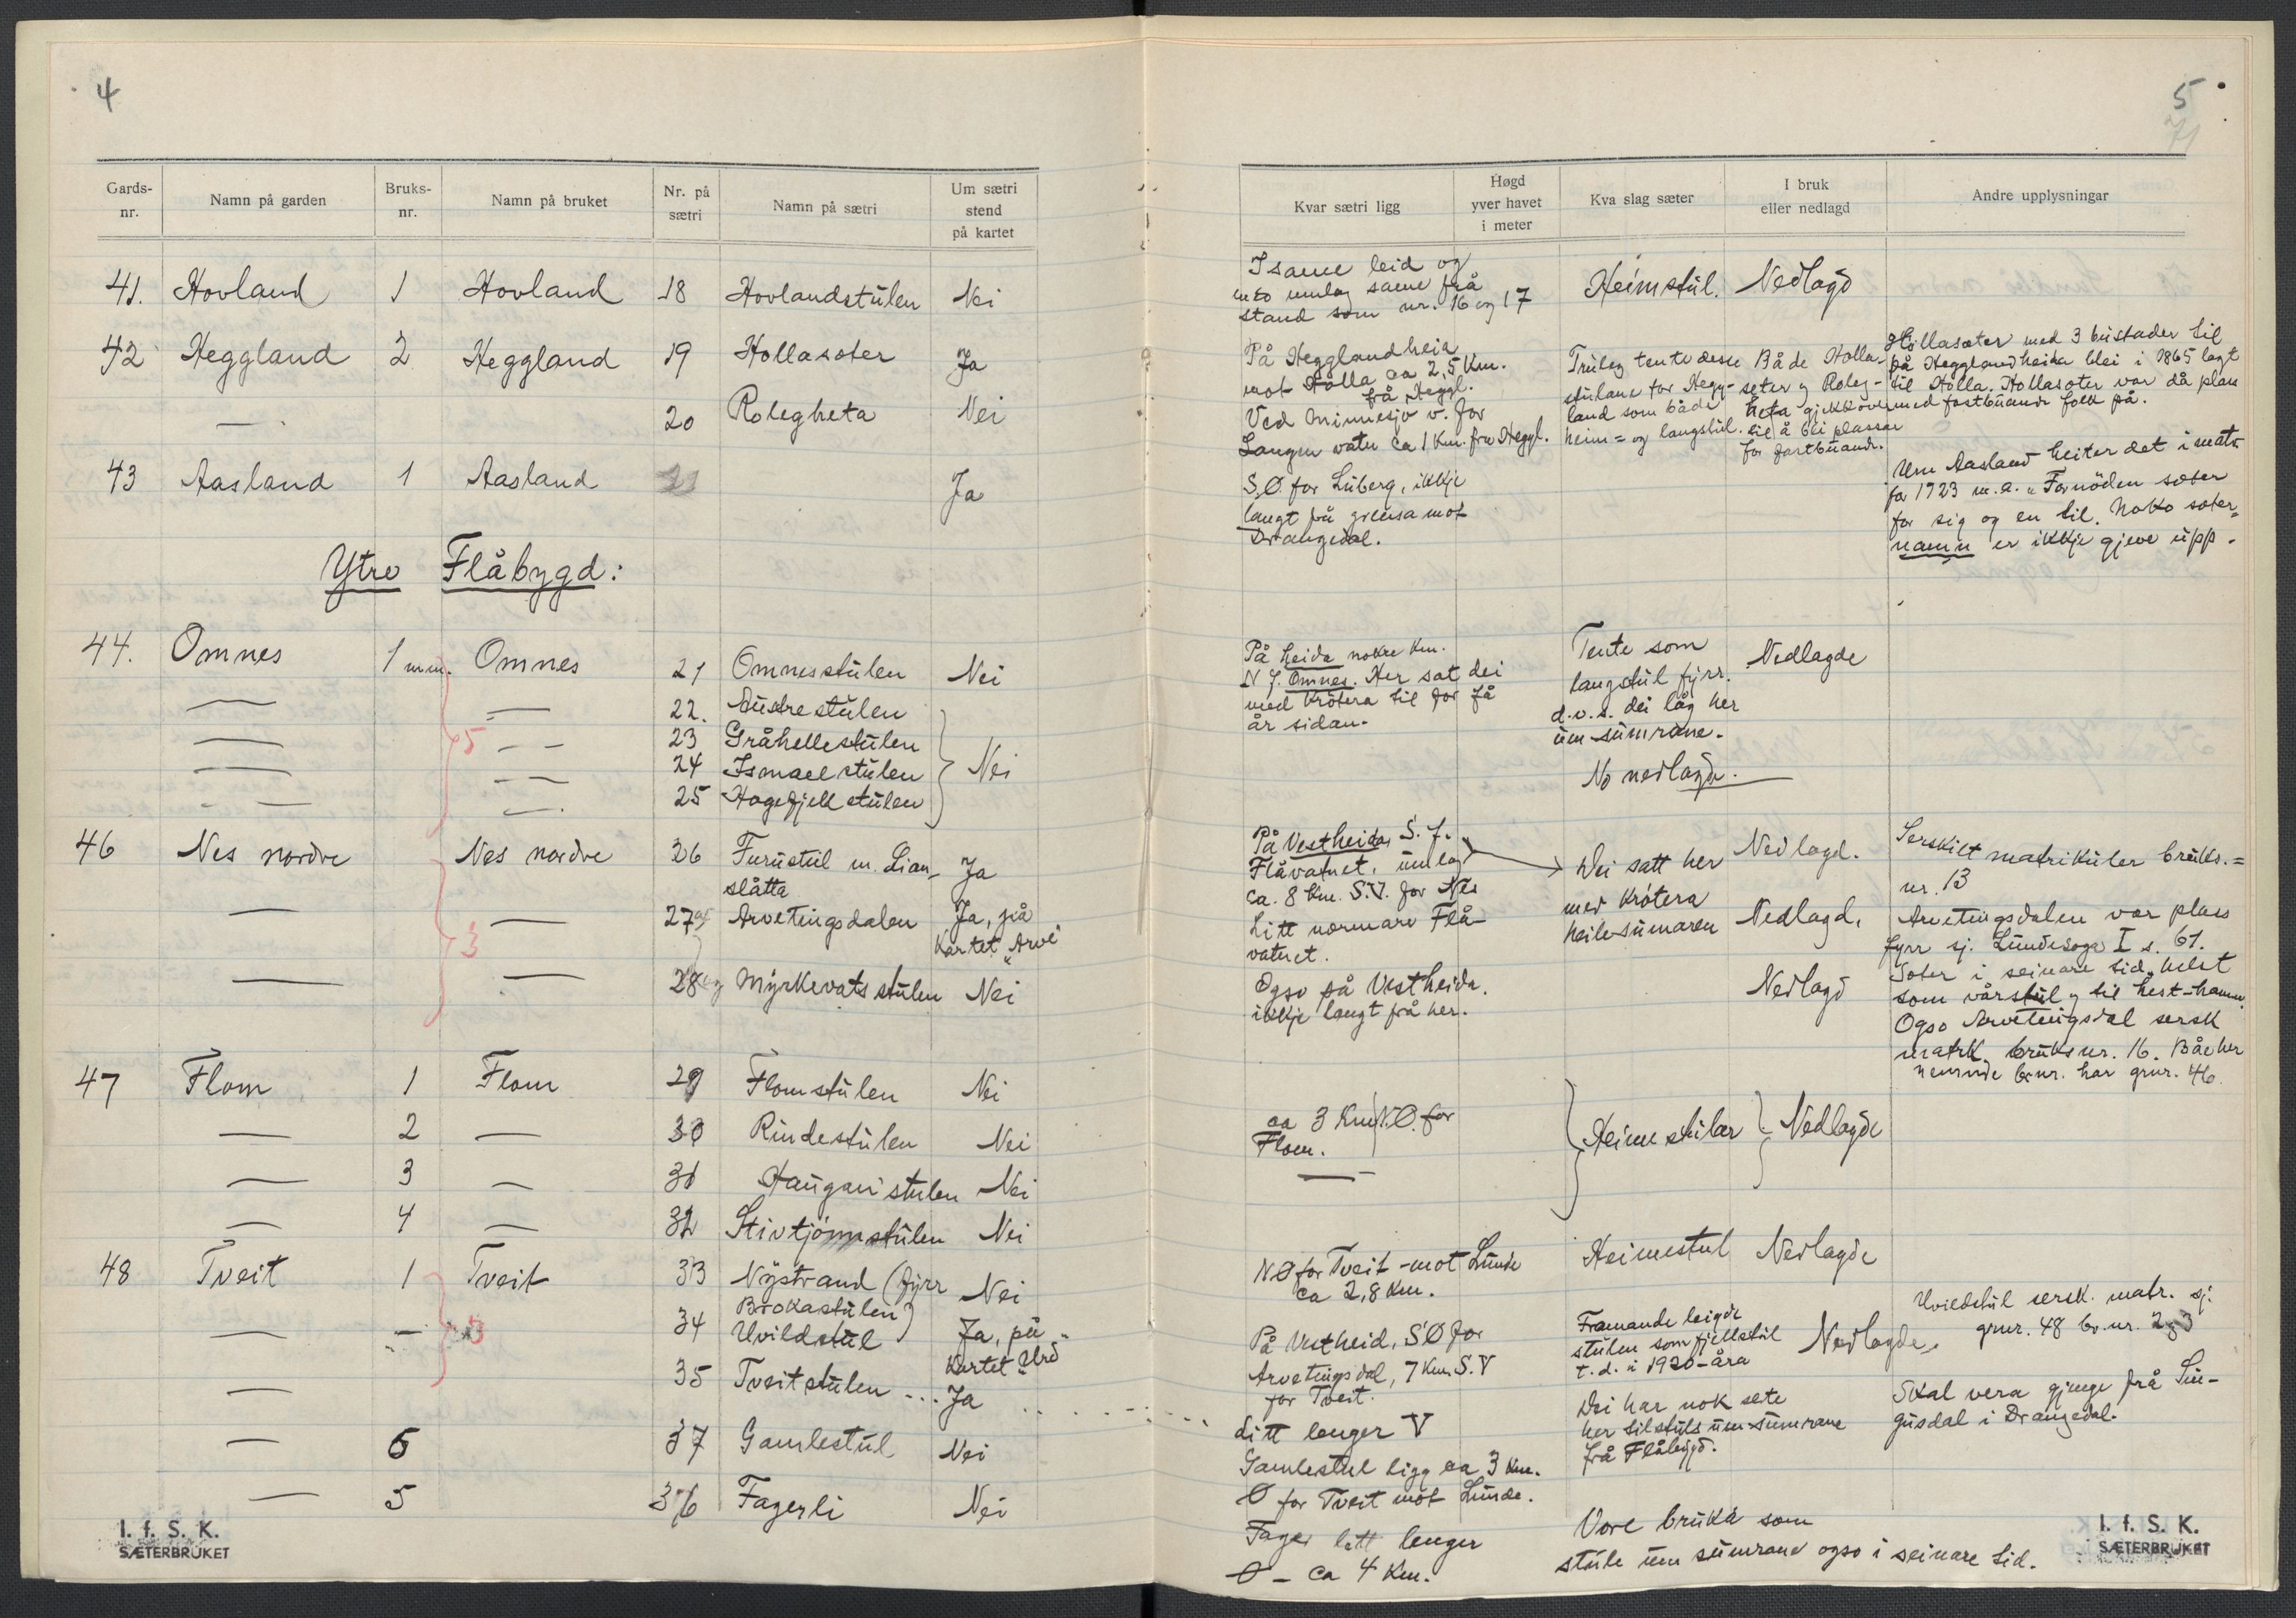 4
Gards-nr. Namn på garden Bruks-nr. Namn på bruket Nr. på sætri Namn på sætri Um sætri stend på kartet
41. Hovland 1 Hovland 18 Hovlandstulen Nei
42 Heggland 2 Heggland 19 Hollasæter Ja
— 20 Rolegheta Nei
43 Aasland 1 Aasland 21 Ja
Ytre Flåbygd:
44. Omnes 1 m.m. Omnes 21 Omnesstulen Nei
— — 22. Austrestulen
— 5 — 23 Gråhellestulen
— — 24 Ismaelstulen Nei
— — 25 Hagefjellstulen
46 Nes nordre Nes nordre 26 Furustul m. Lian-
slåtta Ja
— — 27 og Arvetingsdalen Ja, på
3 kartet "Arve"
— — 28 og Myrkevatsstulen Nei
47 Flom 1 Flom 29 Flomstulen Nei
— 2 — 30 Rindestulen Nei
— 3 — 31 Haugan'stulen Nei
— 4 — 32 Stivtjönnstulen Nei
48 Tveit 1 Tveit 33 Nystrand (fyrr Nei
Brokastulen)
— — 3 34 Uvildstul Ja, på
kartet "Urd"
— 35 Tveitstulen ... Ja
— 6 37 Gamlestul Nei
— 5 36 Fagerli Nei
I. f. S. K.
SÆTERBRUKET
5
71
Kvar sætri ligg Høgd yver havet i meter Kva slag sæter I bruk eller nedlagd Andre upplysningar
I same leid og
med umlag same frå
stand som nr. 16 og 17
Heimstul. Nedlagd
På Hegglandheia
mot Holla ca 2,5 Km.
frå Heggl.
Ved Minnesjö v. for
Langen vatn ca 1 Km. fra Heggl.
Truleg tente desse
stulane for Hegg-
land som både
heim= og langstul.
Både Holla-
seter og Roleg-
heta gjekk over
til å bli plassar
for fastbuande.
Hollasæter med 3 bustader til
på Hegglandheia blei i 1865 lagt
til Holla. Hollasæter var då plass
med fastbuande folk på.
S.Ø. for Luberg, ikkje
langt frå grensa mot
Drangedal.
Um Aasland heiter det i matr.
for 1723 m.a. "Fornöden sæter
for sig og en til. Noko sæter=
namn er ikkje gjeve upp.
På heida nokre Km.
N f. Omnes. Her sat dei
med krötera til for få
år sidan.
Tente som
langstul fyrr.
d.v.s. dei låg her
um sumrane.
No nedlagde.
Nedlagde
På Vestheida, S. f.
Flåvatnet, umlag
ca. 8 Km. S.V. for Nes
Dei satt her
med krötera
heile sumaren
Nedlagd.
Serskilt matrikuler bruks.=
nr. 13
Litt nærmare Flå-
vatnet.
Nedlagd.
Arvetingsdalen var plass
fyrr sj. Lundesoga I s. 61.
Sæter i seinare tid, helst
som vårstul og til hest-hamn.
Ogso på Vestheida.
ikkje langt frå her.
Nedlagd
Ogso Arvetingsdal sersk
matrk. bruksnr. 16. Båe her
nemnde brnr. har grnr. 46.
ca 3 Km N.Ø. for
Flom.
—
Heimestular Nedlagde
NØ for Tveit - mot Lunde
ca 2,8 Km.
Heimestul Nedlagde
På Vestheid, SØ for
Arvetingsdal, 7 Km. S.V
for Tveit.
Framande leigde
stulen som fjellstul
t.d. i 1920-åra
Nedlagde.
Uvildstul sersk. matr. sj.
grnr. 48 br.nr. 2 og 3
Litt lenger V
Dei har nok sete
her tilstuls um sumrane
frå Flåbygd.
Skal vera gjenge frå Lin-
gusdal i Drangedal.
Gamlestul ligg ca 3 Km.
Ø for Tveit mot Lunde.
Fager litt lenger
Ø - ca 4 Km.
Vore bruka som
stule um sumrane ogso i seinare tid.
I. f. S. K.
SÆTERBRUKET